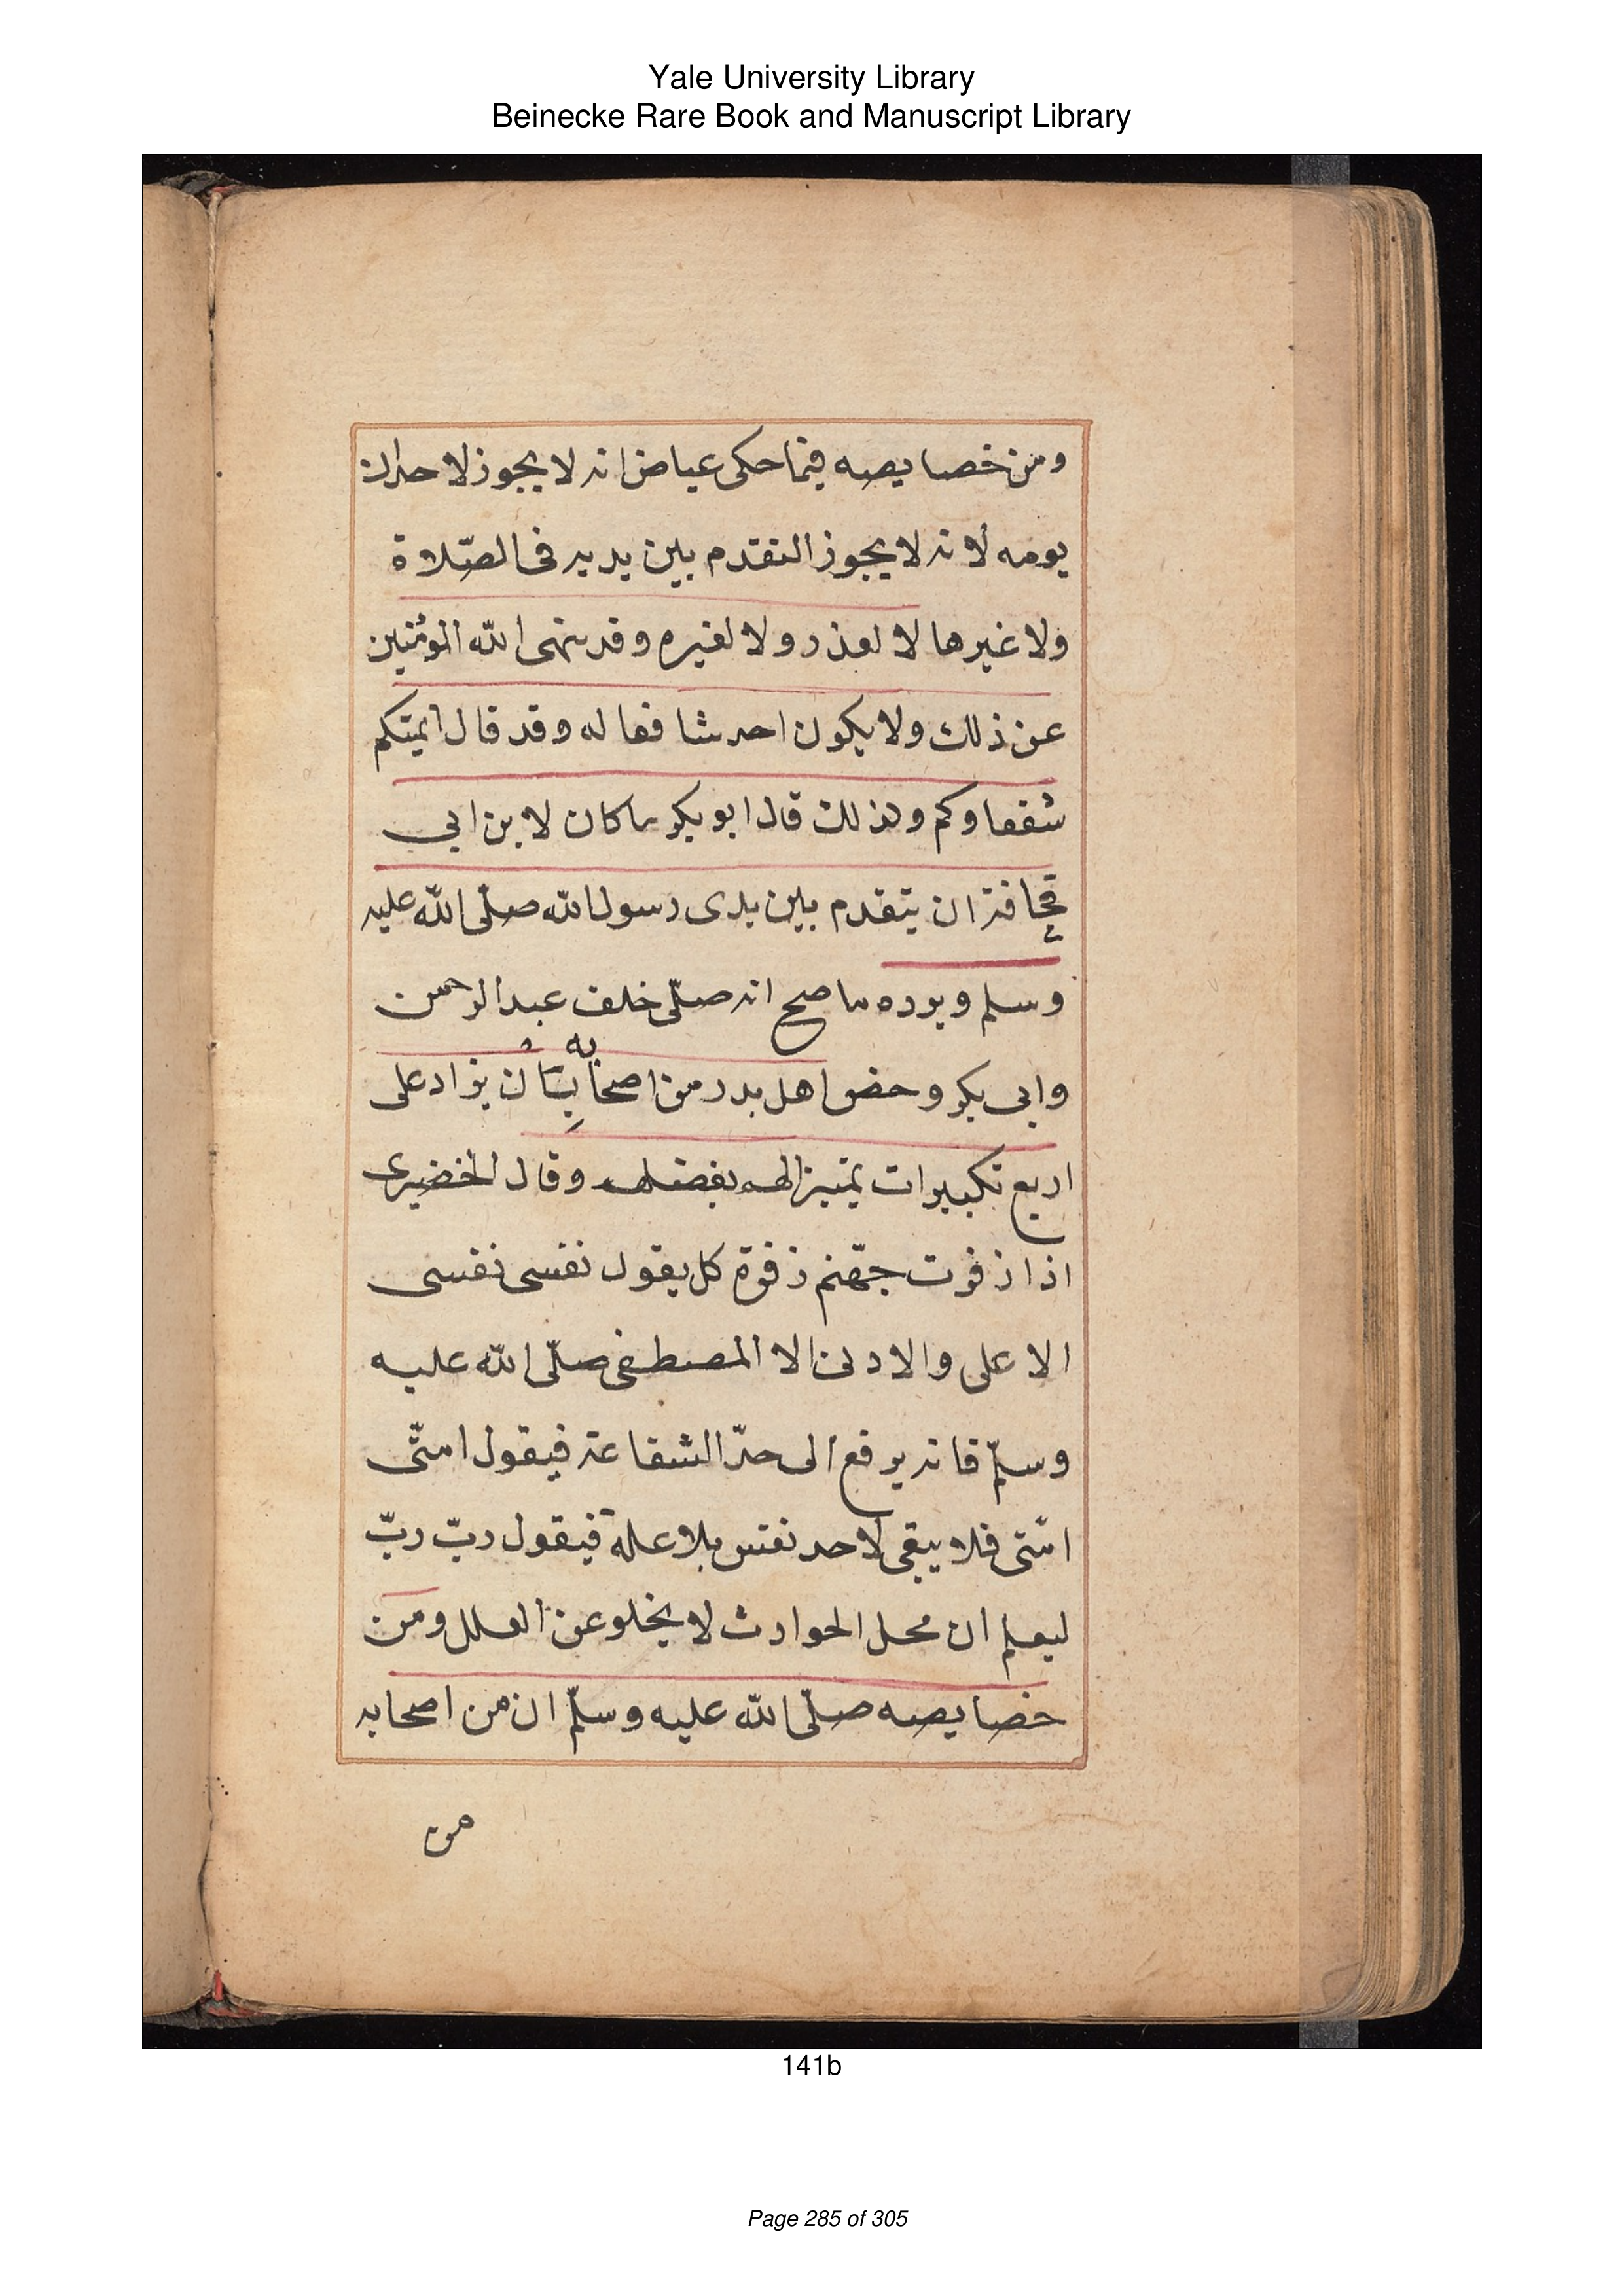 Yale University Library
Beinecke Rare Book and Manuscript Library
ومن خصايصه فيما حكى عياض انه لا يجوز لاحد ان
يومه لانه لا يجوز التقدم بين يديه فى الصّلاة
ولا غيرها لا لعذر ولا لغيره وقد نهى الله المومنين
عن ذلك ولا يكون احد شافعا له وقد قال ايمتكم
شفعاوكم ولذلك قال ابو بكر ما كان لابن ابي
قحافة ان يتقدم بين يدى رسول الله صلّى الله عليه
وسلم ويرده ما صح انه صلّى خلف عبد الرحمن
وابى بكر وحض اهل بدر من اصحابه ان يزاد على
اربع تكبيرات تميزا لهم بفضلهم وقال الخضيرى
اذا زفرت جهّنم زفرة كل يقول نفسى نفسى
الاعلى والادنى الا المصطفى صلّى الله عليه
وسلّم فانه يرفع الى حدّ الشفاعة فيقول امتّى
امّتى فلا يبقى لاحد نفس بلا علة فيقول ربّ ربّ
ليعلم ان محل الحوادث لا يخلو عن العلل ومن
خصايصه صلّى الله عليه وسلّم ان من اصحابه
من
141b
Page 285 of 305